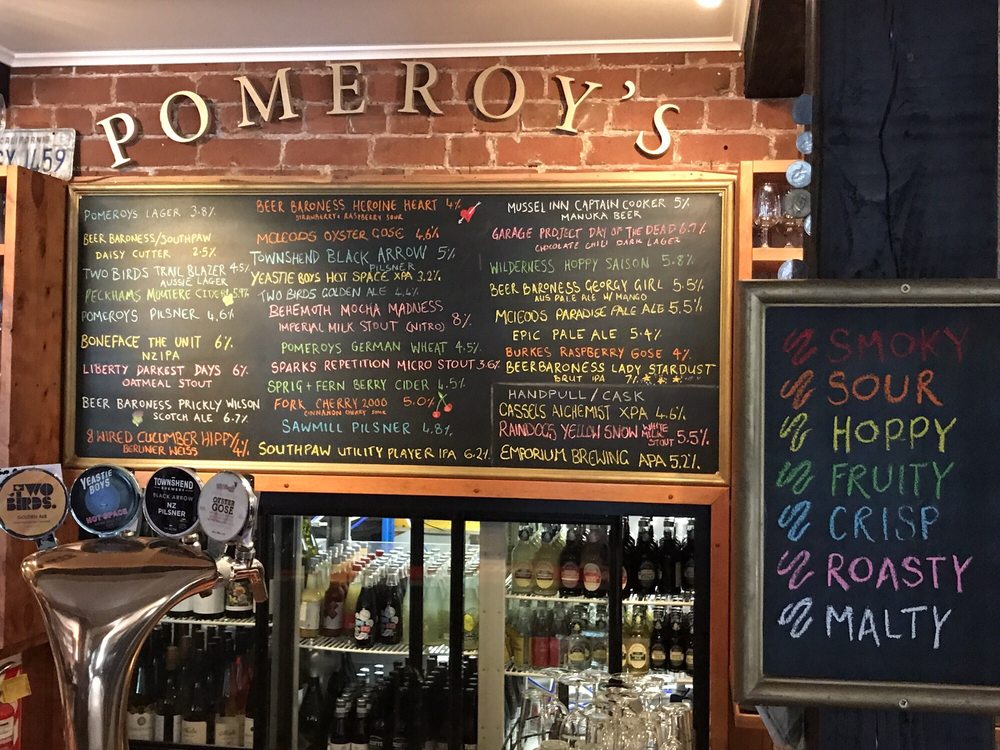 POMEROY'S
CALIFORNIA
1459
POMEROYS LAGER 3.8%
BEER BARONESS/SOUTHPAW
DAISY CUTTER 2.5%
TWO BIRDS TRAIL BLAZER 4.5%
AUSSIE LAGER
PECKHAMS MOUTERE CIDER 5.9%
POMEROYS PILSNER 4.6%
BONEFACE THE UNIT 6%
NZ IPA
LIBERTY DARKEST DAYS 6%
OATMEAL STOUT
BEER BARONESS PRICKLY WILSON
SCOTCH ALE 6.7%
8 WIRED CUCUMBER HIPPY 4%
BERLINER WEISS
BEER BARONESS HEROINE HEART 4%
STRAWBERRY & RASPBERRY SOUR
MCLEODS OYSTER GOSE 4.6%
TOWNSHEND BLACK ARROW 5%
PILSNER
YEASTIE BOYS HOT SPACE XPA 3.2%
TWO BIRDS GOLDEN ALE 4.4%
BEHEMOTH MOCHA MADNESS
IMPERIAL MILK STOUT (NITRO) 8%
POMEROYS GERMAN WHEAT 4.5%
SPARKS REPETITION MICRO STOUT 3.6%
SPRIG + FERN BERRY CIDER 4.5%
FORK CHERRY 2000 5.0%
CINNAMON CHERRY SOUR
SAWMILL PILSNER 4.8%
SOUTHPAW UTILITY PLAYER IPA 6.2%
MUSSEL INN CAPTAIN COOKER 5%
MANUKA BEER
GARAGE PROJECT DAY OF THE DEAD 6.7%
CHOCOLATE CHILI DARK LAGER
WILDERNESS HOPPY SAISON 5.8%
BEER BARONESS GEORGY GIRL 5.5%
AUS PALE ALE W/ MANGO
MCLEODS PARADISE PALE ALE 5.5%
EPIC PALE ALE 5.4%
BURKES RASPBERRY GOSE 4%
BEER BARONESS LADY STARDUST
BRUT IPA 7%
HANDPULL / CASK
CASSELS ALCHEMIST XPA 4.6%
RAINDOGS YELLOW SNOW WHITE MILK STOUT 5.5%
EMPORIUM BREWING APA 5.2%
SMOKY
SOUR
HOPPY
FRUITY
CRISP
ROASTY
MALTY
TWO BIRDS.
GOLDEN ALE
YEASTIE BOYS
HOT SPACE
TOWNSHEND
BREWERY
BLACK ARROW
NZ
PILSNER
OYSTER
GOSE